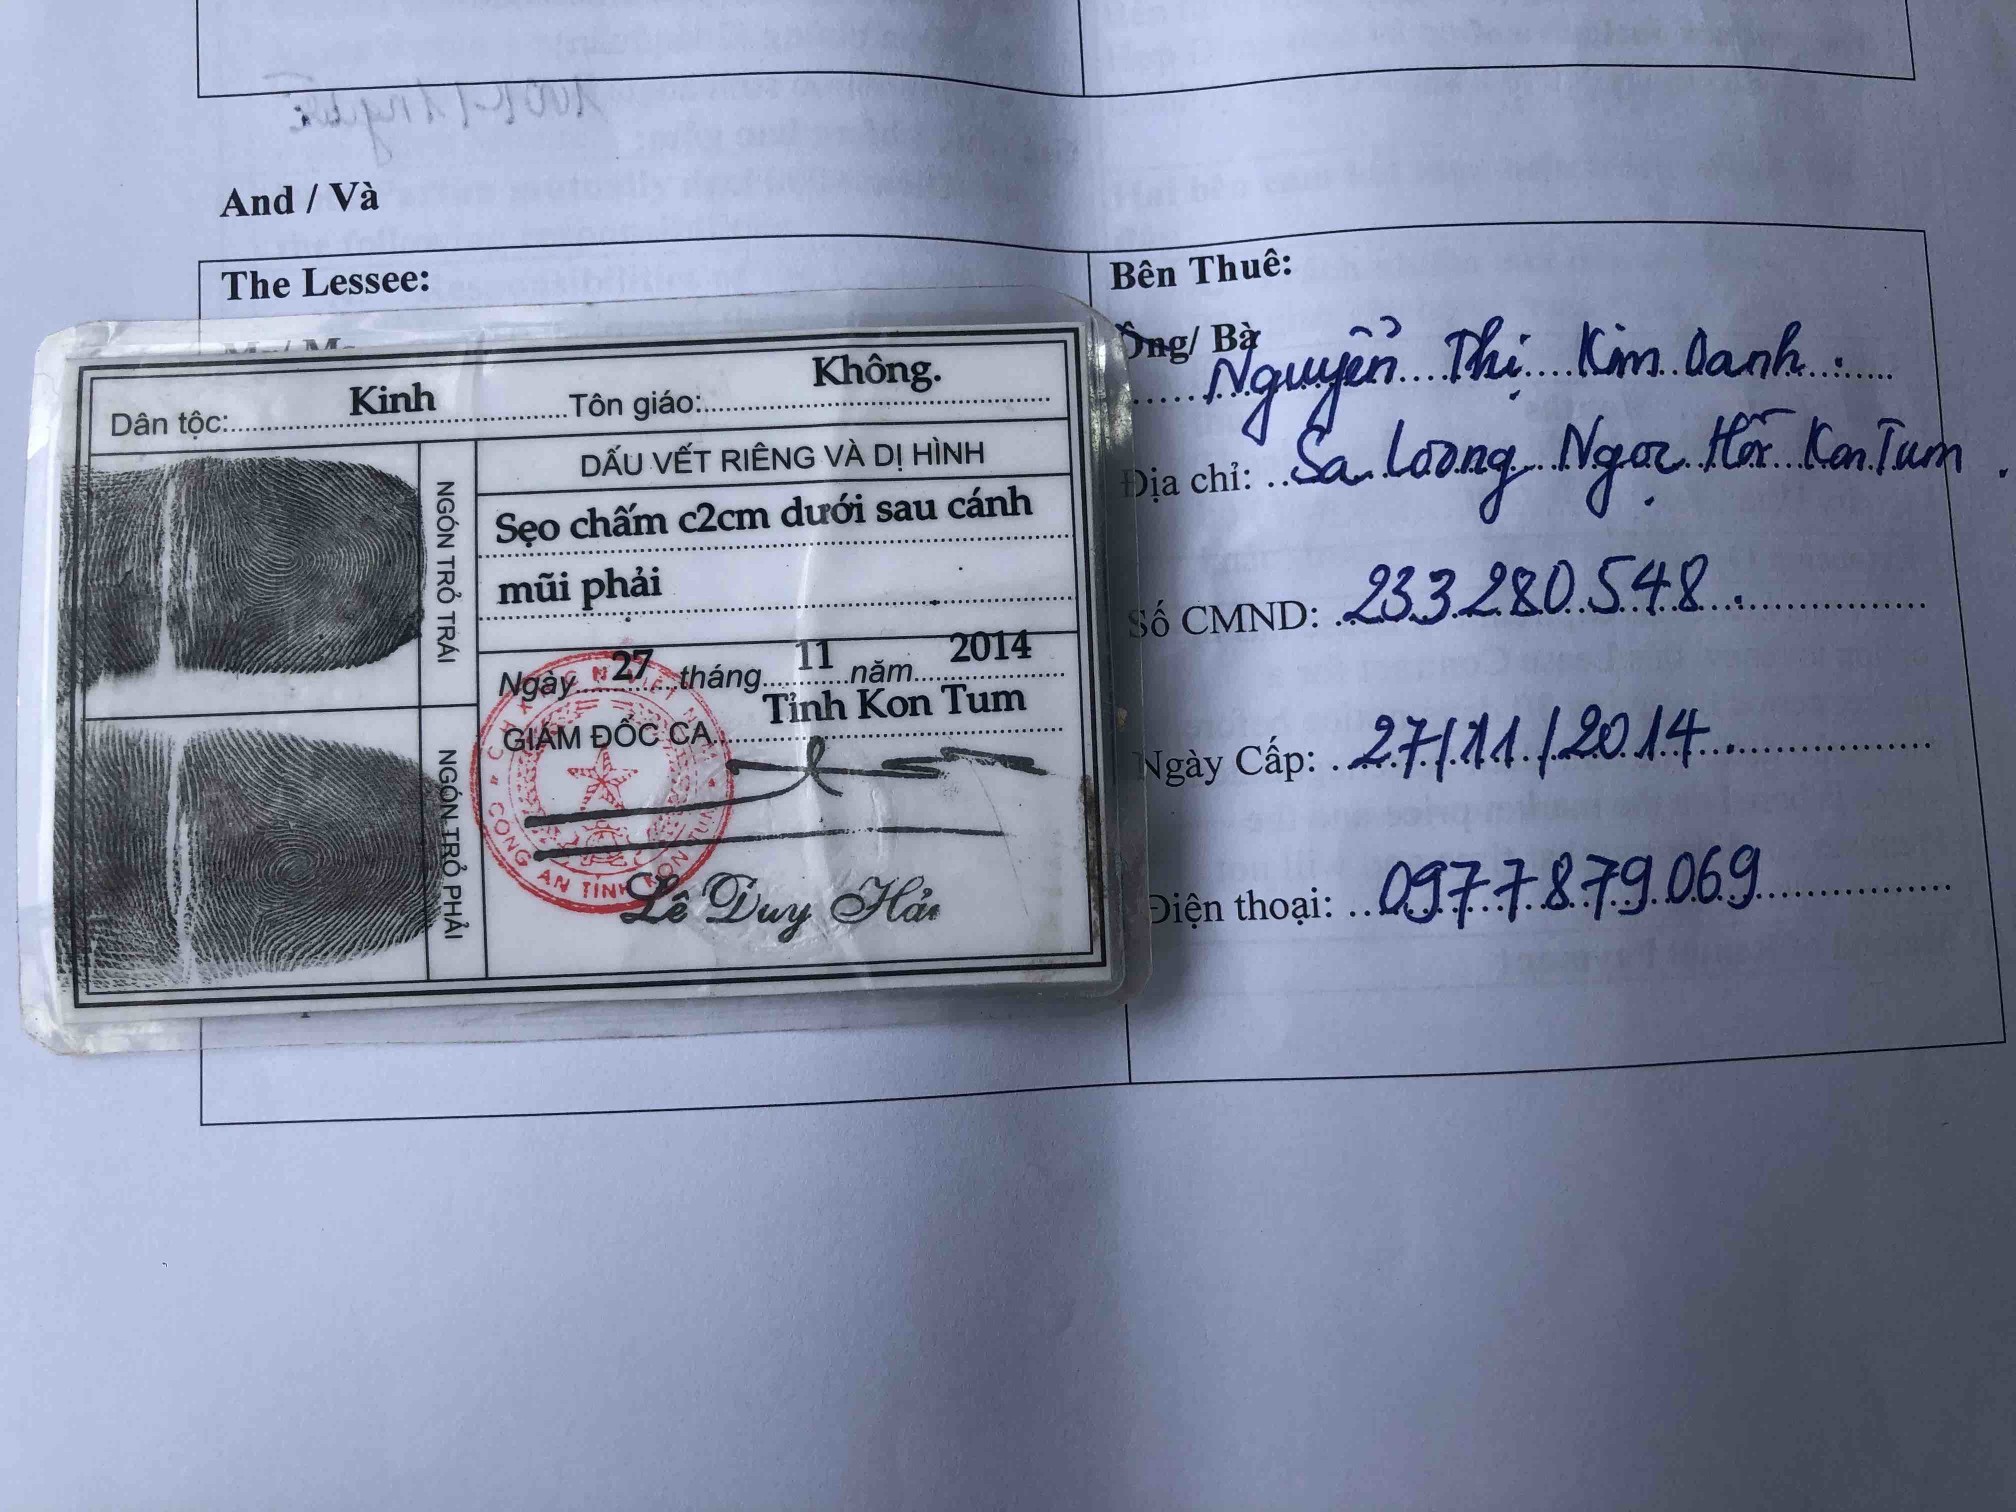 And / Và
The Lessee:
Dân tộc: Kinh Tôn giáo: Không.
NGÓN TRỎ TRÁI
NGÓN TRỎ PHẢI
DẤU VẾT RIÊNG VÀ DỊ HÌNH
Sẹo chấm c2cm dưới sau cánh
mũi phải
Ngày 27 tháng 11 năm 2014
GIÁM ĐỐC CA Tỉnh Kon Tum
CÔNG AN TỈNH KON TUM
Lê Duy Hải
Bên Thuê:
Ông/ Bà
Nguyễn Thị Kim Oanh
Địa chỉ: Sa Loong Ngọc Hồi Kon Tum
Số CMND: 233280548
Ngày Cấp: 27/11/2014
Điện thoại: 0977879069